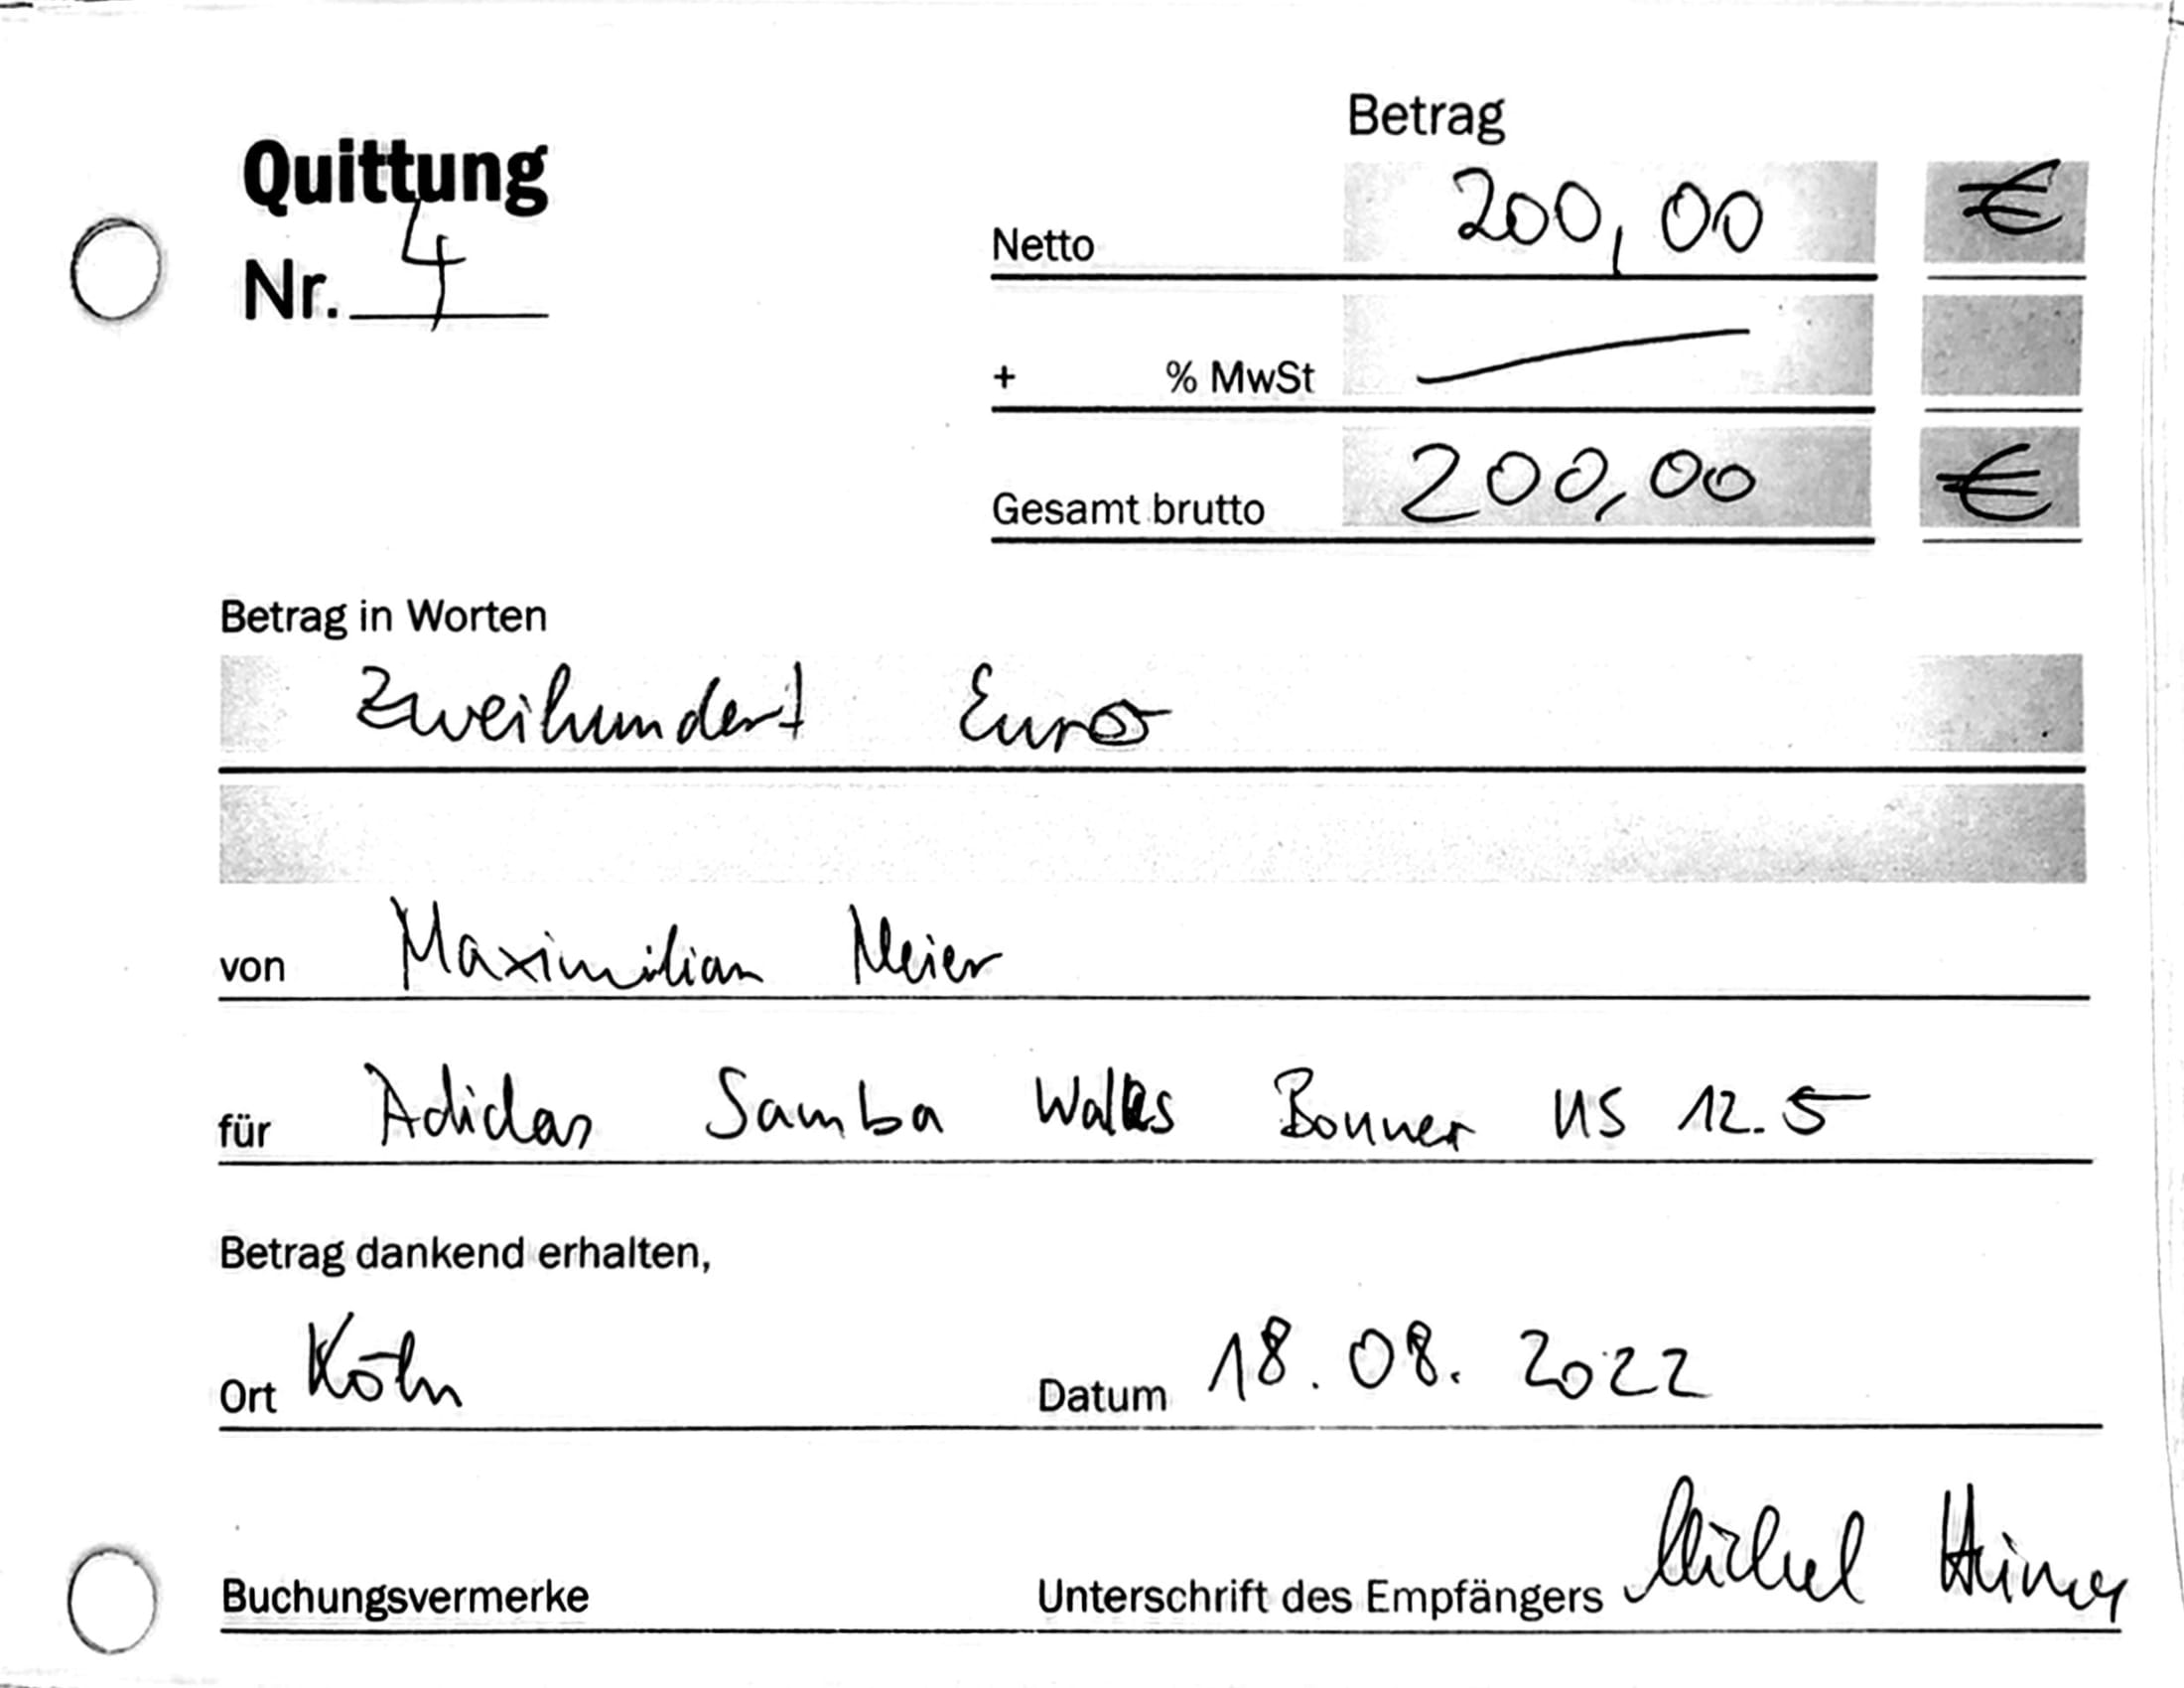 Betrag
Quittung
Nr. 4
Netto 200,00 €
+ % MwSt
Gesamt brutto 200,00 €
Betrag in Worten
Zweihundert Euro
von Maximilian Meier
für Adidas Samba Wales Bonner US 12.5
Betrag dankend erhalten,
Ort Köln Datum 18.08.2022
Buchungsvermerke Unterschrift des Empfängers Michel